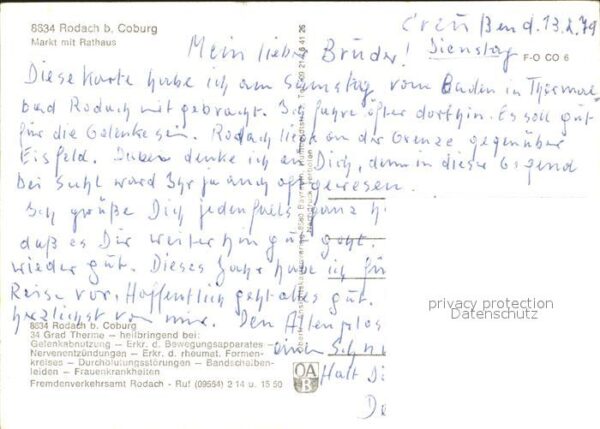 8634 Rodach b. Coburg
Markt mit Rathaus
Creußen d. 13.2.79
Dienstag
F-O CO 6
Mein lieber Brüder!
Diese Karte habe ich am Samstag vom Baden in Thermal
bad Rodach mitgebracht. Ich fahre öfter dorthin. Es soll gut
für die Gelenke sein. Rodach liegt an der Grenze gegenüber
Eisfeld. Dabei denke ich an Dich, denn in dieser Gegend
bei Suhl ward Ihr ja auch oft gewesen.
Ich grüße Dich jedenfalls ganz h
daß es Dir weiterhin gut geht.
wieder gut. Dieses Jahr habe ich für
Reise vor. Hoffentlich geht alles gut.
herzlichst von mir. Den
einen
Halt Di
De
8634 Rodach b. Coburg
34 Grad Therme – heilbringend bei:
Gelenkabnutzung – Erkr. d. Bewegungsapparates –
Nervenentzündungen – Erkr. d. rheumat. Formen-
kreises – Durchblutungsstörungen – Bandscheiben-
leiden – Frauenkrankheiten
Fremdenverkehrsamt Rodach - Ruf (09564) 2 14 u. 15 50
OA
B
privacy protection
Datenschutz